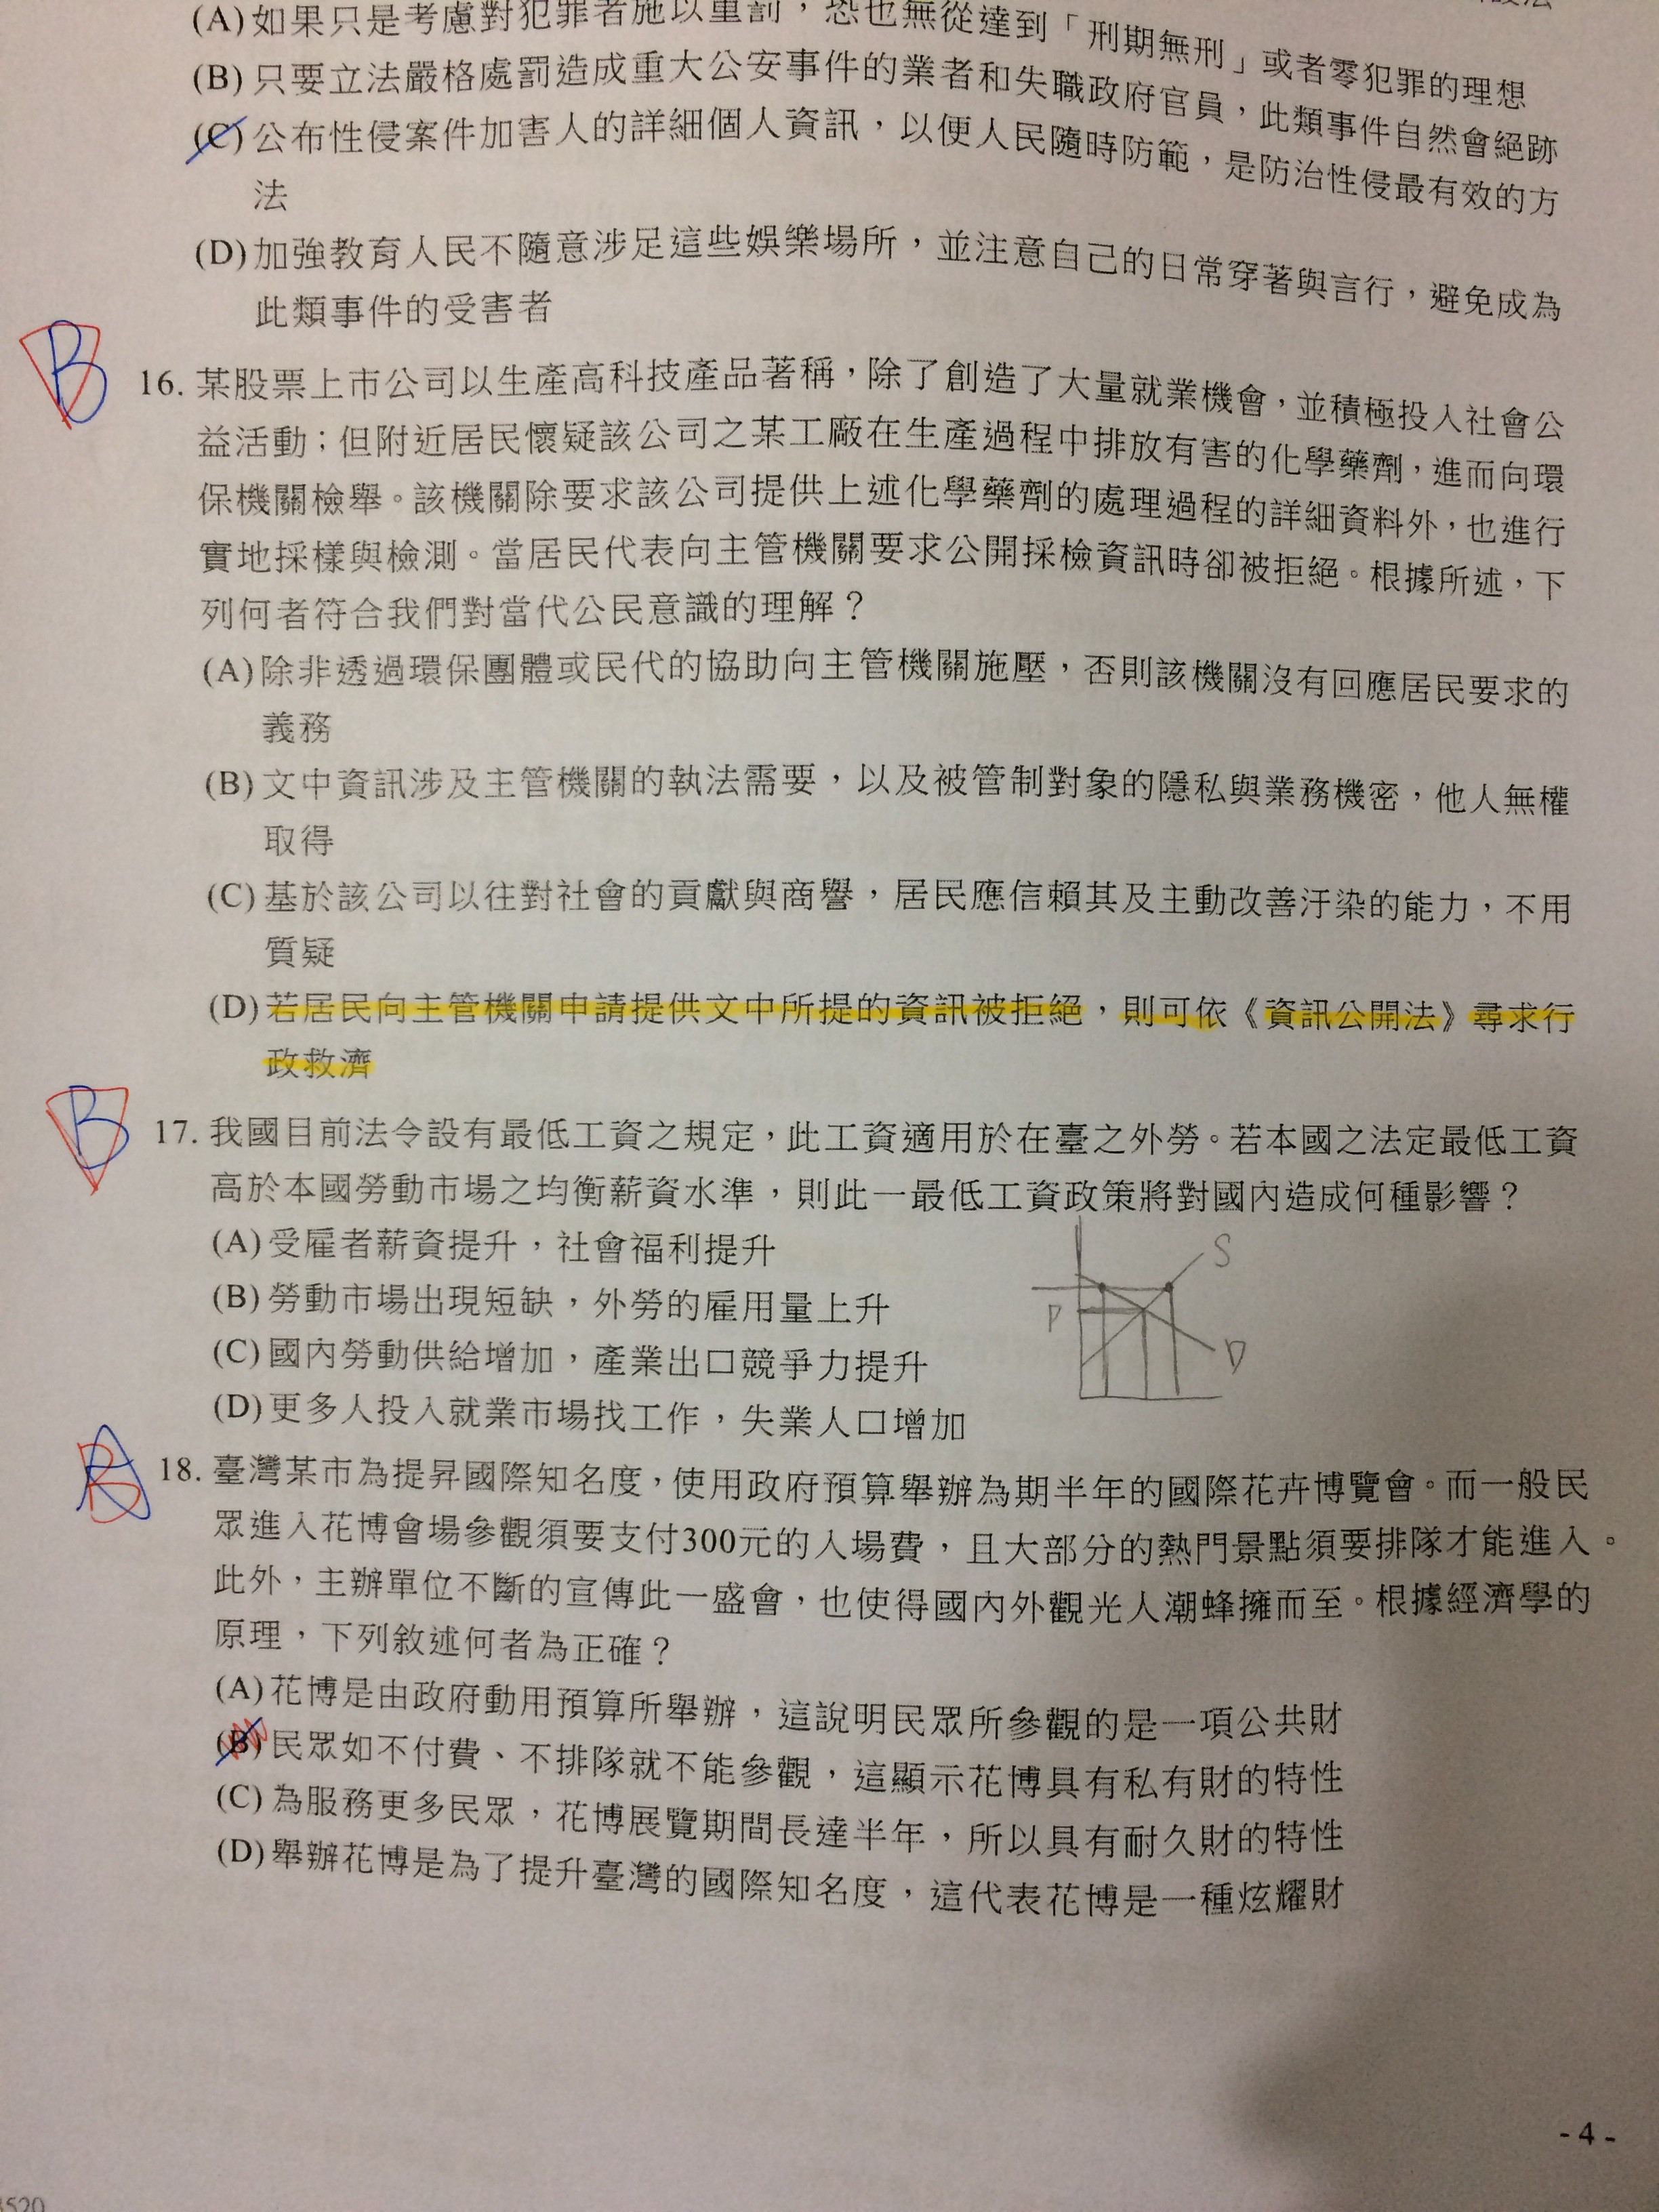 (A)如果只是考慮對犯罪者施以重罰，恐也無從達到「刑期無刑」或者零犯罪的理想
(B)只要立法嚴格處罰造成重大公安事件的業者和失職政府官員，此類事件自然會絕跡
(C)公布性侵案件加害人的詳細個人資訊，以便人民隨時防範，是防治性侵最有效的方
法
(D)加強教育人民不隨意涉足這些娛樂場所，並注意自己的日常穿著與言行，避免成為
此類事件的受害者
B
16. 某股票上市公司以生產高科技產品著稱，除了創造了大量就業機會，並積極投入社會公
益活動；但附近居民懷疑該公司之某工廠在生產過程中排放有害的化學藥劑，進而向環
保機關檢舉。該機關除要求該公司提供上述化學藥劑的處理過程的詳細資料外，也進行
實地採樣與檢測。當居民代表向主管機關要求公開採檢資訊時卻被拒絕。根據所述，下
列何者符合我們對當代公民意識的理解？
(A)除非透過環保團體或民代的協助向主管機關施壓，否則該機關沒有回應居民要求的
義務
(B)文中資訊涉及主管機關的執法需要，以及被管制對象的隱私與業務機密，他人無權
取得
(C)基於該公司以往對社會的貢獻與商譽，居民應信賴其及主動改善汙染的能力，不用
質疑
(D)若居民向主管機關申請提供文中所提的資訊被拒絕，則可依《資訊公開法》尋求行
政救濟
B
17. 我國目前法令設有最低工資之規定，此工資適用於在臺之外勞。若本國之法定最低工資
高於本國勞動市場之均衡薪資水準，則此一最低工資政策將對國內造成何種影響？
(A)受雇者薪資提升，社會福利提升
(B)勞動市場出現短缺，外勞的雇用量上升
(C)國內勞動供給增加，產業出口競爭力提升
(D)更多人投入就業市場找工作，失業人口增加
S
P
D
A
B
18. 臺灣某市為提昇國際知名度，使用政府預算舉辦為期半年的國際花卉博覽會。而一般民
眾進入花博會場參觀須要支付300元的入場費，且大部分的熱門景點須要排隊才能進入。
此外，主辦單位不斷的宣傳此一盛會，也使得國內外觀光人潮蜂擁而至。根據經濟學的
原理，下列敘述何者為正確？
(A)花博是由政府動用預算所舉辦，這說明民眾所參觀的是一項公共財
(B)民眾如不付費、不排隊就不能參觀，這顯示花博具有私有財的特性
(C)為服務更多民眾，花博展覽期間長達半年，所以具有耐久財的特性
(D)舉辦花博是為了提升臺灣的國際知名度，這代表花博是一種炫耀財
- 4 -